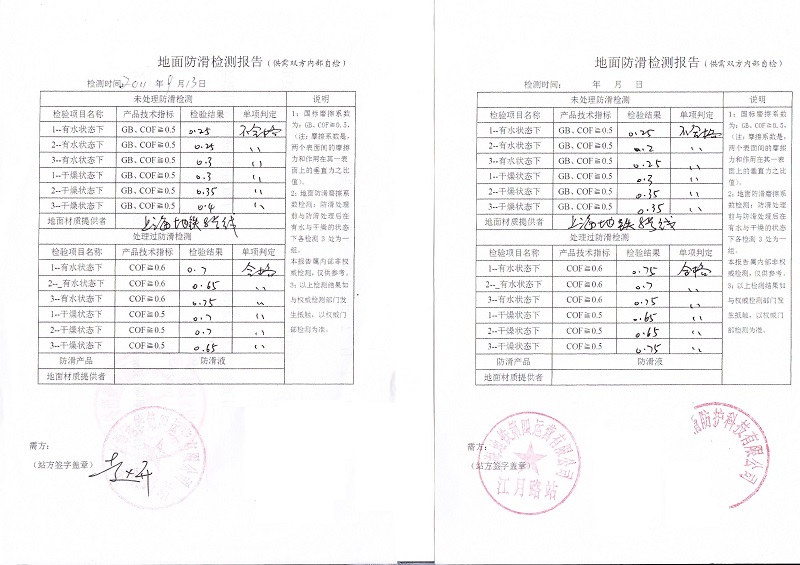 地面防滑检测报告（供需双方内部自检）
检测时间：2011 年 8 月 13 日
未处理防滑检测 说明
检验项目名称 产品技术指标 检验结果 单项判定
1--有水状态下 GB、COF≧0.5 0.25 不合格
2--有水状态下 GB、COF≧0.5 0.25 〃
3--有水状态下 GB、COF≧0.5 0.3 〃
1--干燥状态下 GB、COF≧0.5 0.3 〃
2--干燥状态下 GB、COF≧0.5 0.35 〃
3--干燥状态下 GB、COF≧0.5 0.4 〃
地面材质提供者 上海地铁8号线
处理过防滑检测
检验项目名称 产品技术指标 检验结果 单项判定
1--有水状态下 COF≧0.6 0.7 合格
2--_有水状态下 COF≧0.6 0.65 〃
3--有水状态下 COF≧0.6 0.75 〃
1--干燥状态下 COF≧0.5 0.7 〃
2--干燥状态下 COF≧0.5 0.7 〃
3--干燥状态下 COF≧0.5 0.65 〃
防滑产品 防滑液
地面材质提供者
1：国标摩擦系数
为：GB、COF≧0.5。
（注：摩擦系数是、
两个表面间的摩擦
力和作用在其一表
面上的垂直力之比
值）。
2：地面防滑摩擦系
数检测：防滑处理
前与防滑处理后在
有水与干燥的状态
下各检测 3 处为一
组。
本报告属内部非权
威检测，仅供参考。
3：以上检测结果如
与权威检测部门发
生抵触，以权威门
部检测为准。
需方：
（站方签字盖章）
地面防滑检测报告（供需双方内部自检）
检测时间： 年 月 日
未处理防滑检测 说明
检验项目名称 产品技术指标 检验结果 单项判定
1--有水状态下 GB、COF≧0.5 0.25 不合格
2--有水状态下 GB、COF≧0.5 0.2 〃
3--有水状态下 GB、COF≧0.5 0.25 〃
1--干燥状态下 GB、COF≧0.5 0.3 〃
2--干燥状态下 GB、COF≧0.5 0.35 〃
3--干燥状态下 GB、COF≧0.5 0.35 〃
地面材质提供者 上海地铁8号线
处理过防滑检测
检验项目名称 产品技术指标 检验结果 单项判定
1--有水状态下 COF≧0.6 0.75 合格
2--_有水状态下 COF≧0.6 0.7 〃
3--有水状态下 COF≧0.6 0.75 〃
1--干燥状态下 COF≧0.5 0.65 〃
2--干燥状态下 COF≧0.5 0.65 〃
3--干燥状态下 COF≧0.5 0.75 〃
防滑产品 防滑液
地面材质提供者
1：国标摩擦系数
为：GB、COF≧0.5。
（注：摩擦系数是、
两个表面间的摩擦
力和作用在其一表
面上的垂直力之比
值）。
2：地面防滑摩擦系
数检测：防滑处理
前与防滑处理后在
有水与干燥的状态
下各检测 3 处为一
组。
本报告属内部非权
威检测，仅供参考。
3：以上检测结果如
与权威检测部门发
生抵触，以权威门
部检测为准。
需方：
（站方签字盖章）
第四运营有限公司
江月路站
防护科技有限公司